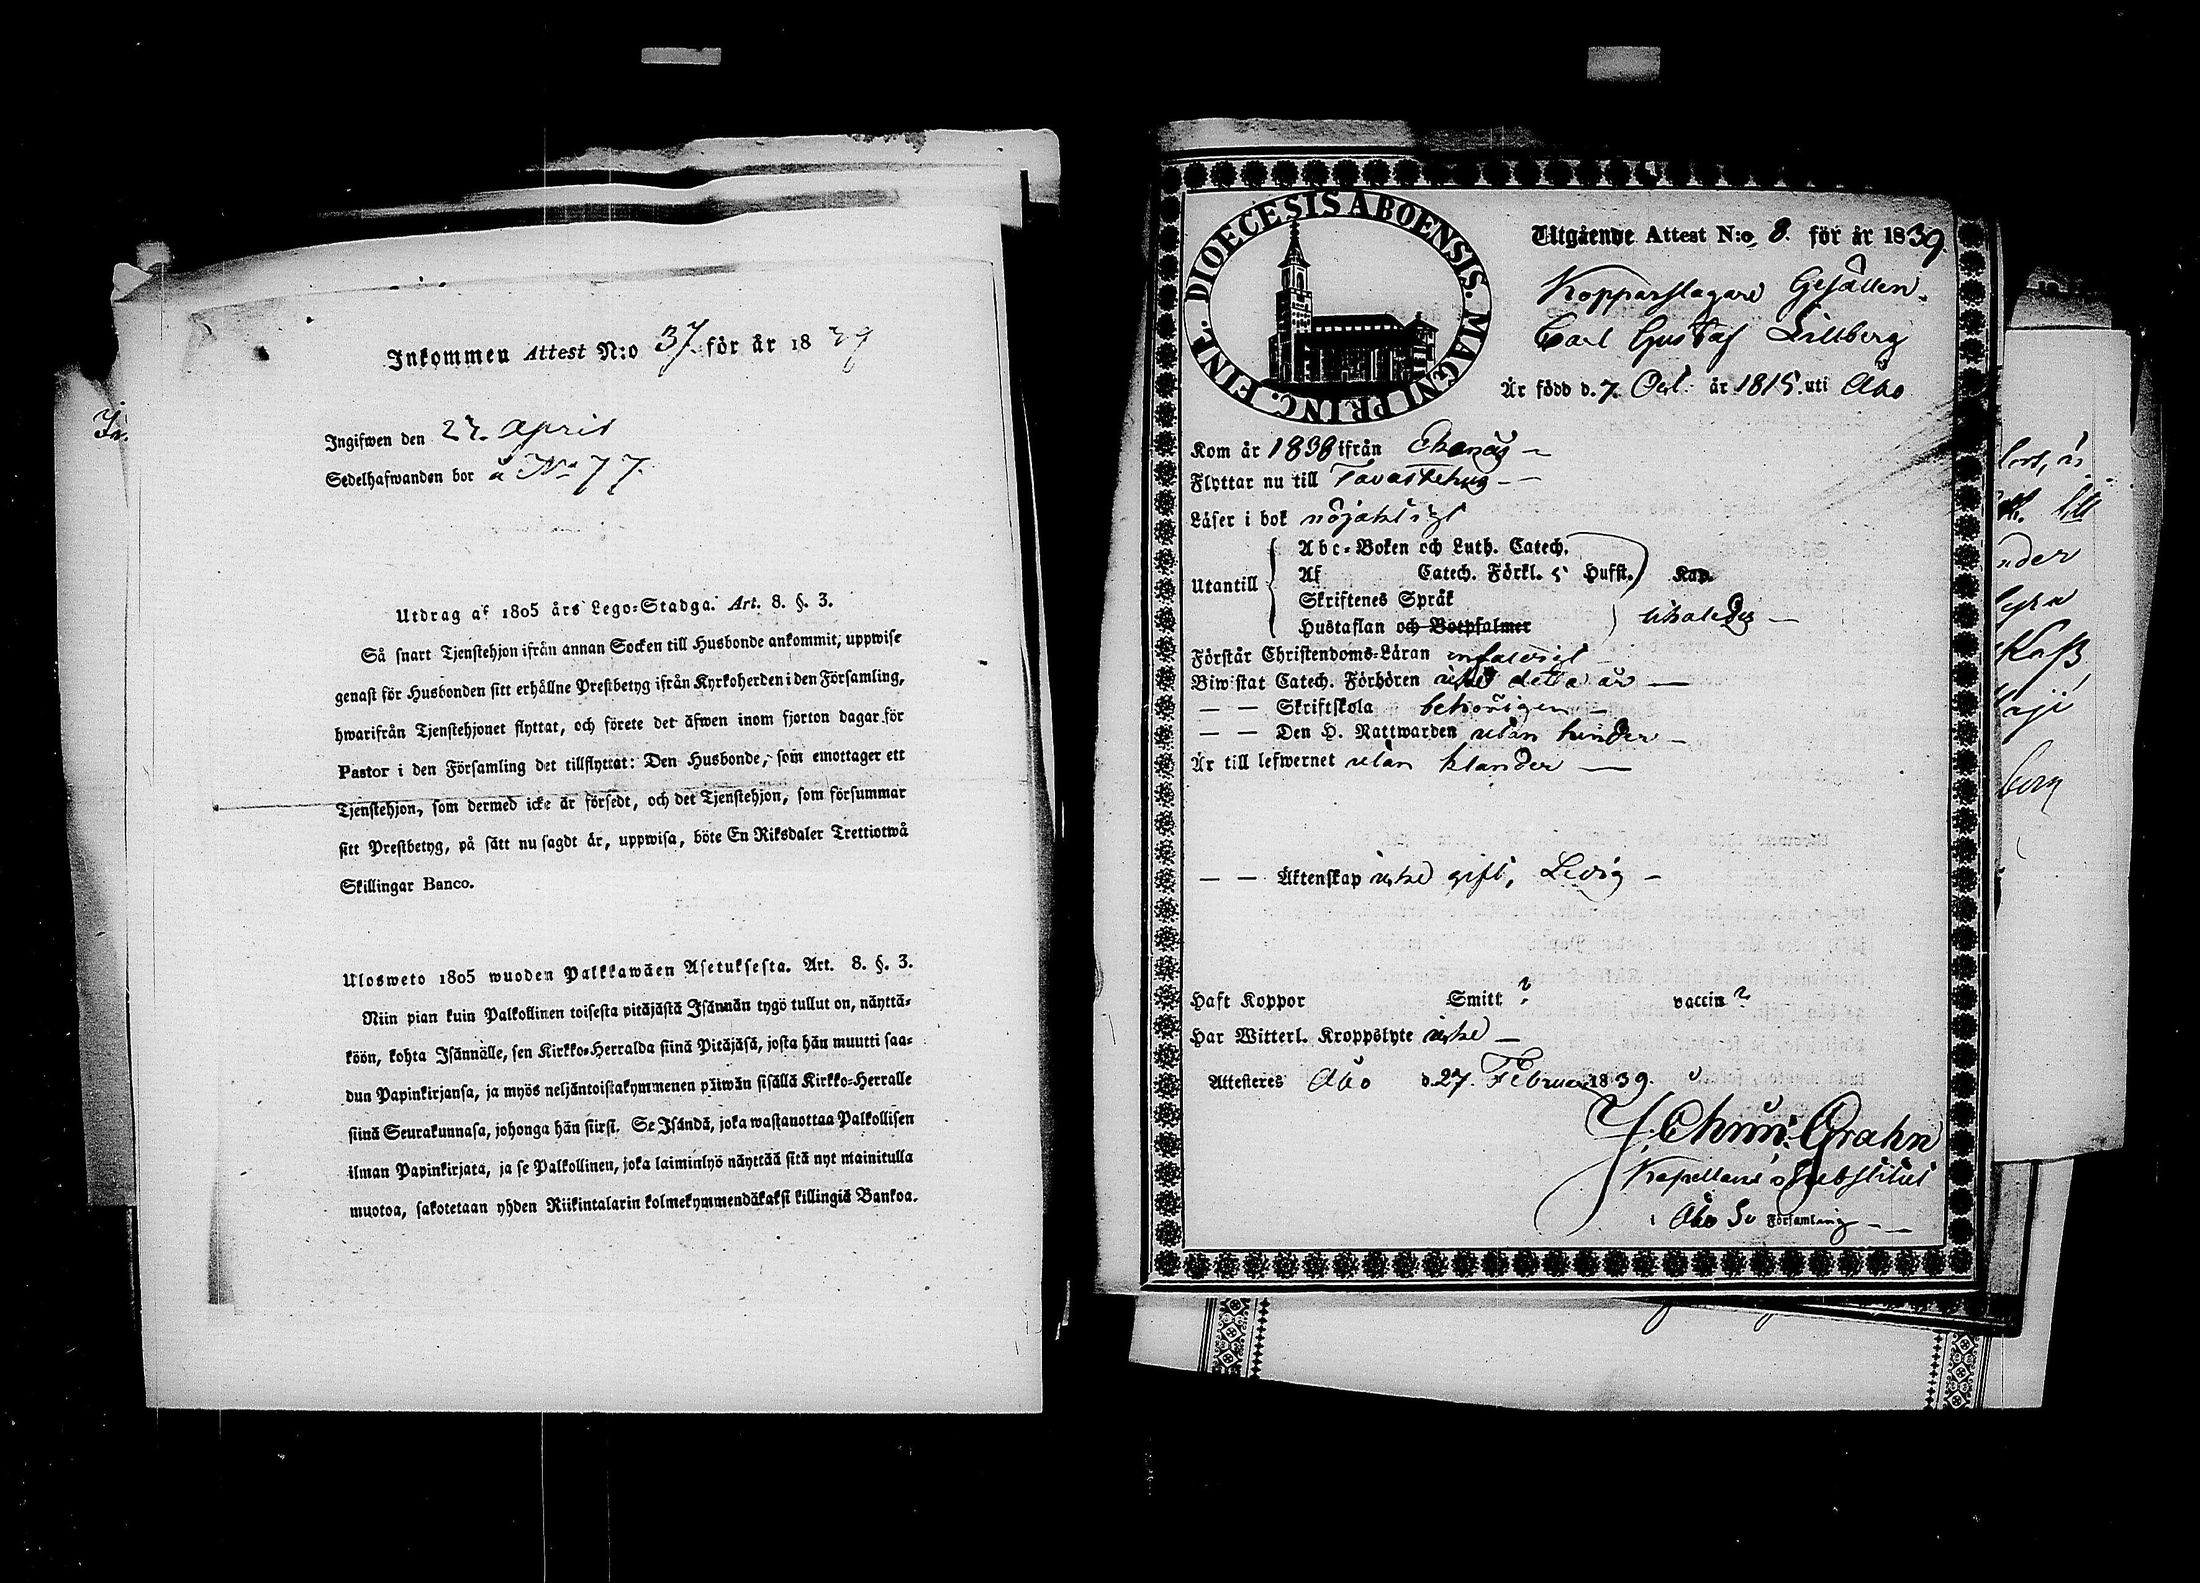 Inkommen Attest N:o 37 för år 1839
Ingifwen den 27. April
Sedelhafwanden bor å No 77.
Utdrag af 1805 års Lego-Stadga. Art. 8. §. 3.
Så snart Tjenstehjon ifrån annan Socken till Husbonde ankommit, uppwise
genast för Husbonden sitt erhållne Prestbetyg ifrån Kyrkoherden i den Församling,
hwarifrån Tjenstehjonet flyttat, och förete det äfwen inom fjorton dagar för
Pastor i den Församling det tillflyttat: Den Husbonde, som emottager ett
Tjenstehjon, som dermed icke är försedt, och det Tjenstehjon, som försummar
sitt Prestbetyg, på sätt nu sagdt är, uppwisa, böte En Riksdaler Trettiotwå
Skillingar Banco.
Ulosweto 1805 wuoden Palkkawäen Asetuksesta. Art. 8. §. 3.
Niin pian kuin Palkollinen toisesta pitäjästä Isännän tygö tullut on, näyttä-
köön, kohta Isännälle, sen Kirkko-Herralda siinä Pitäjäsä, josta hän muutti saa-
dun Papinkirjansa, ja myös neljäntoistakymmenen päiwän sisällä Kirkko-Herralle
siinä Seurakunnasa, johonga hän siirsi. Se Isändä, joka wastanottaa Palkollisen
ilman Papinkirjata, ja se Palkollinen, joka laiminlyö näyttää sitä nyt mainitulla
muotoa, sakotetaan yhden Riikintalarin kolmekymmendäkaksi killingiä Bankoa.
DIOECESIS ABOENSIS. MAGNI PRINC. FINL.
Utgående Attest N:o 8. för år 1839
Kopparslagare Gesällen
Carl Gustaf Lillberg
Är född d. 7. Oct. år 1815. uti Åbo
Kom år 1838 ifrån Ekenäs
Flyttar nu till Tavastehus
Läser i bok nöjaktigt
Utantill
Abc-Boken och Luth. Catech.
Af Catech. Förkl. 5 Hufst. Kap.
Skriftenes Språk
Hustaflan och Botpsalmer utaledes
Förstår Christendoms-Läran enfaldigt
Biwistat Catech. Förhören icke detta år
— — Skriftskola behörigen
— — Den H. Nattwarden utan hinder
Är till lefwernet utan klander
— — Äktenskap icke gift, Ledig
Haft Koppor Smitt ? vaccin ?
Har Witterl. Kroppslyte icke
Attesteres Åbo d. 27. Februari 1839.
Grahn
Kapellans Substitut
i Åbo Sv Församling